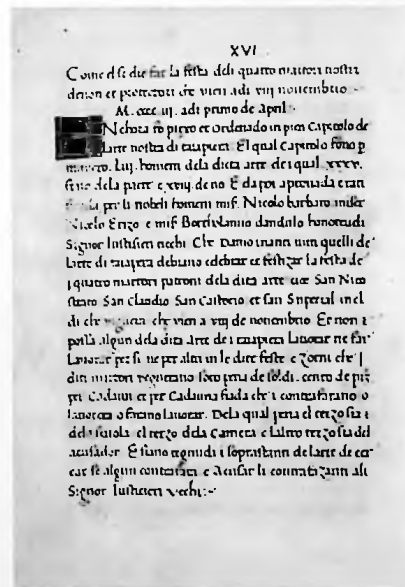 XVI
Come el se die far la festa deli quatro martori nostri
deuon et protetori che vien adi viij nouembrio
M. cccc iij. adi primo de April
N chora fo preso et Ordenado in pien Capitolo de
larte nostra di taiapera El qual Capitolo fono p
Lvij. homeni dela dicta arte de i qual xxxv.
fono dela parte e xxiij. de no E da poi aprouada e
per li nobeli homeni mis. Nicolo barbaro miser
Nicolo Erizo e mis. Bortholamio dandulo honoreuoli
Signor Iusticieri vechi Che Damo inanti tuti quelli de
larte di taiapera debiano celebrar et festizar la festa de
i quatro martori patroni dela dita arte zoe San Nico
strato San Claudio San Castorio et san Superial in el
di che che vien a viij de nouembrio Et non i
possa algun dela dita arte de i taiapera lauorar ne far
Lauorar per si ne per altri in le dite feste e Zorni che i
diti martori vegnerano soto pena de soldi. cento de piz
per Cadaun et per Caduna fiada che i contrafarano o
lauorera o farano lauorar. Dela qual pena el terzo sia
dela scuola el terzo dela Camera e laltro terzo sia del
acusador. E siano tegnudi i soprastanti de larte de cer
car se algun contrafara e Acusar li contrafazanti ali
Signor Iusticieri vechi:~